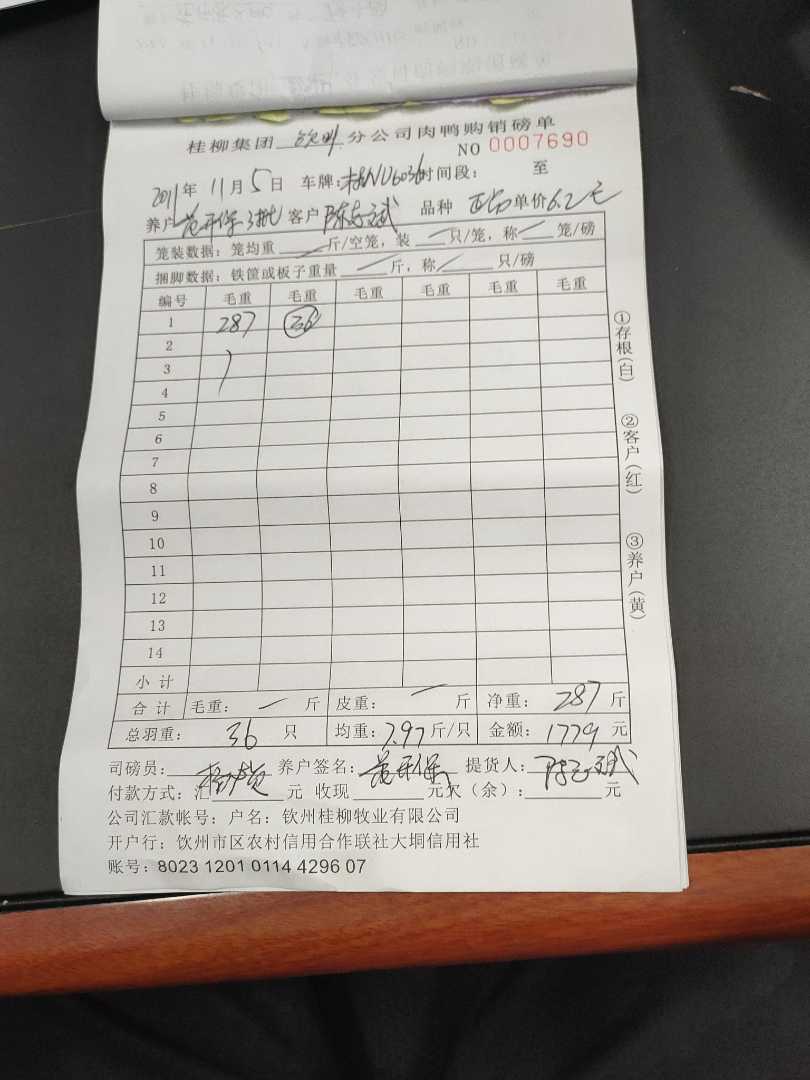 桂柳集团 钦州 分公司肉鸭购销磅单
NO 0007690
2011年 11月 5日 车牌: 时间段: 至
养户 范开保 3批 客户 陈志斌 品种 单价6.2元
笼装数据:笼均重 — 斤/空笼,装 — 只/笼,称 — 笼/磅
捆脚数据:铁筐或板子重量 — 斤,称 — 只/磅
编号 毛重 毛重 毛重 毛重 毛重 毛重
1 287 36
2
3
4
5
6
7
8
9
10
11
12
13
14
小计
合计 毛重: — 斤 皮重: — 斤 净重: 287 斤
总羽重: 36 只 均重: 7.97 斤/只 金额: 1779 元
司磅员: 养户签名: 范开保 提货人: 陈志斌
付款方式:汇 元 收现 元欠(余): 元
公司汇款帐号:户名:钦州桂柳牧业有限公司
开户行:钦州市区农村信用合作联社大垌信用社
账号:8023 1201 0114 4296 07
①存根(白)
②客户(红)
③养户(黄)